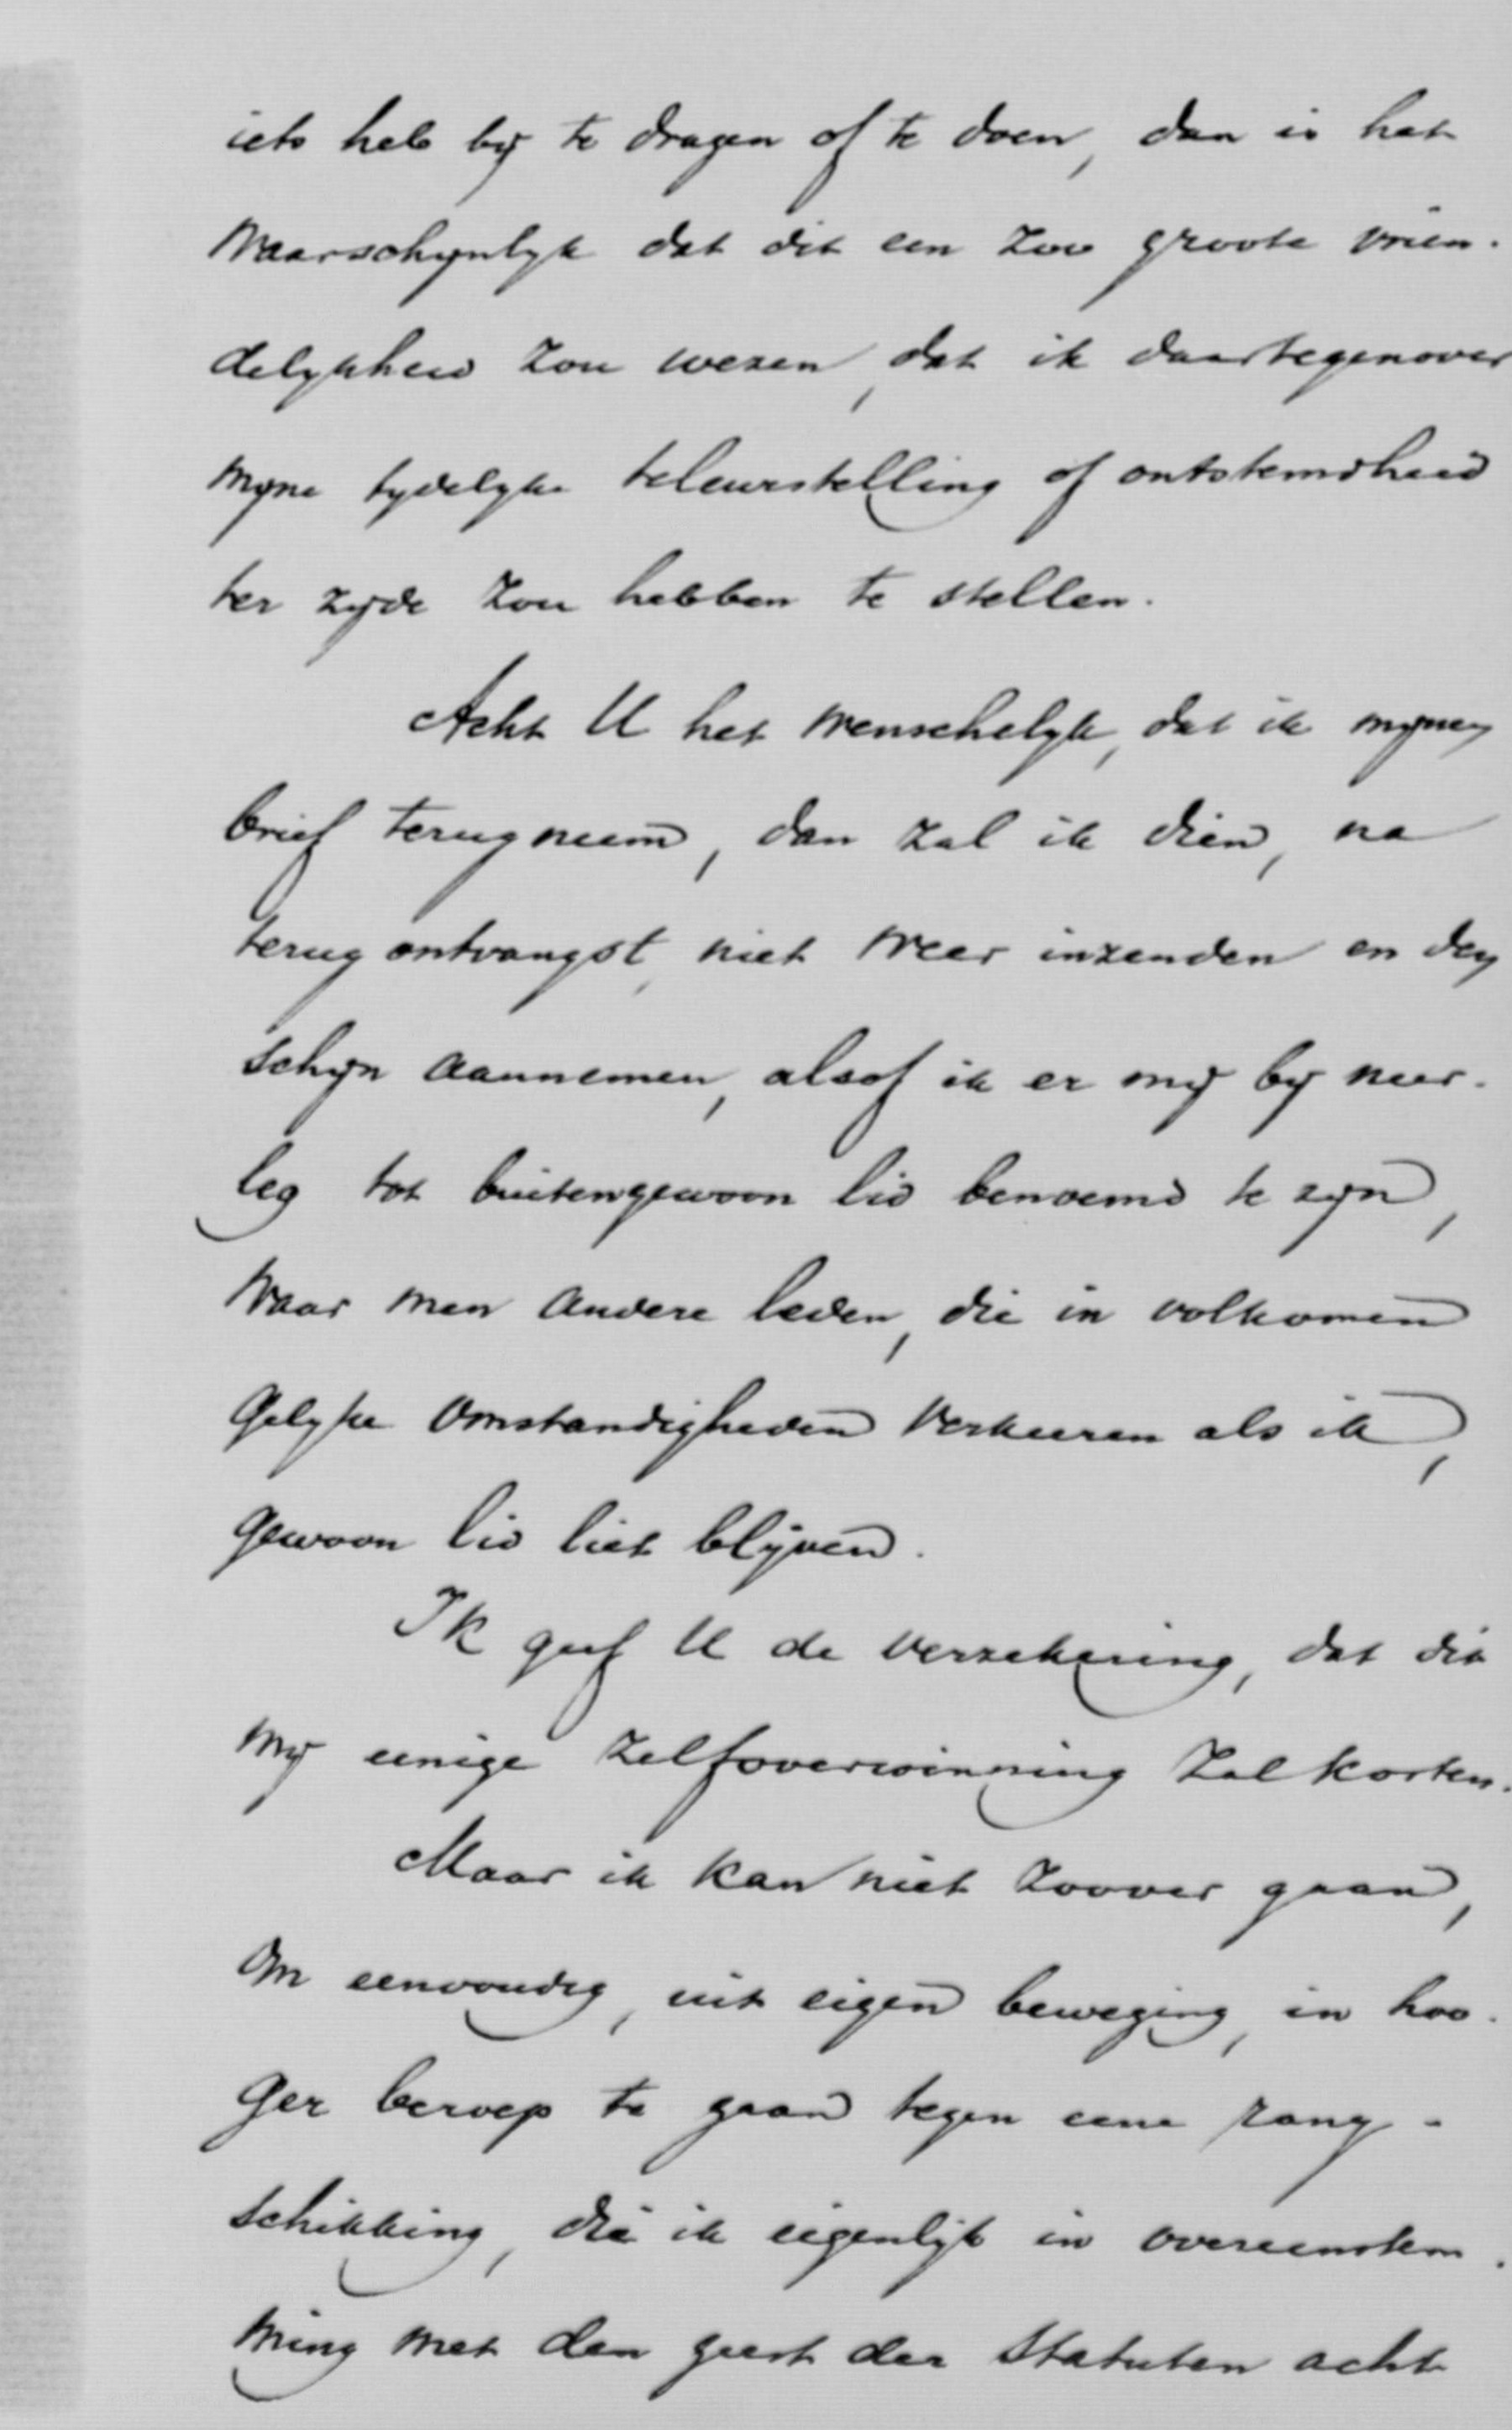 iets heb bij te dragen of te doen, dan is het
waarschynlyk dat dit een zoo groote vrien-
delykheid zou wezen, dat ik daartegenover
myne tydelyke teleurstelling of ontstemdheid
ter zyde zou hebben te stellen.
Acht U het wenschelyk, dat ik mynen
brief terugneem, dan zal ik dien, na
terugontvangst, niet weer inzenden en den
schyn aannemen, alsof ik er mij bij neer-
leg tot buitengewoon lid benoemd te zyn,
waar men andere leden, die in volkomen
gelyke omstandigheden verkeeren als ik,
gewoon lid liet blijven.
Ik geef U de verzekering, dat dit
mij eenige zelfoverwinning zal kosten.
Maar ik kan niet zoover gaan,
om eenvoudig, uit eigen beweging, in hoo-
ger beroep te gaan tegen eene rang-
schikking, die ik eigenlijk in overeenstem-
ming met den geest der Statuten acht